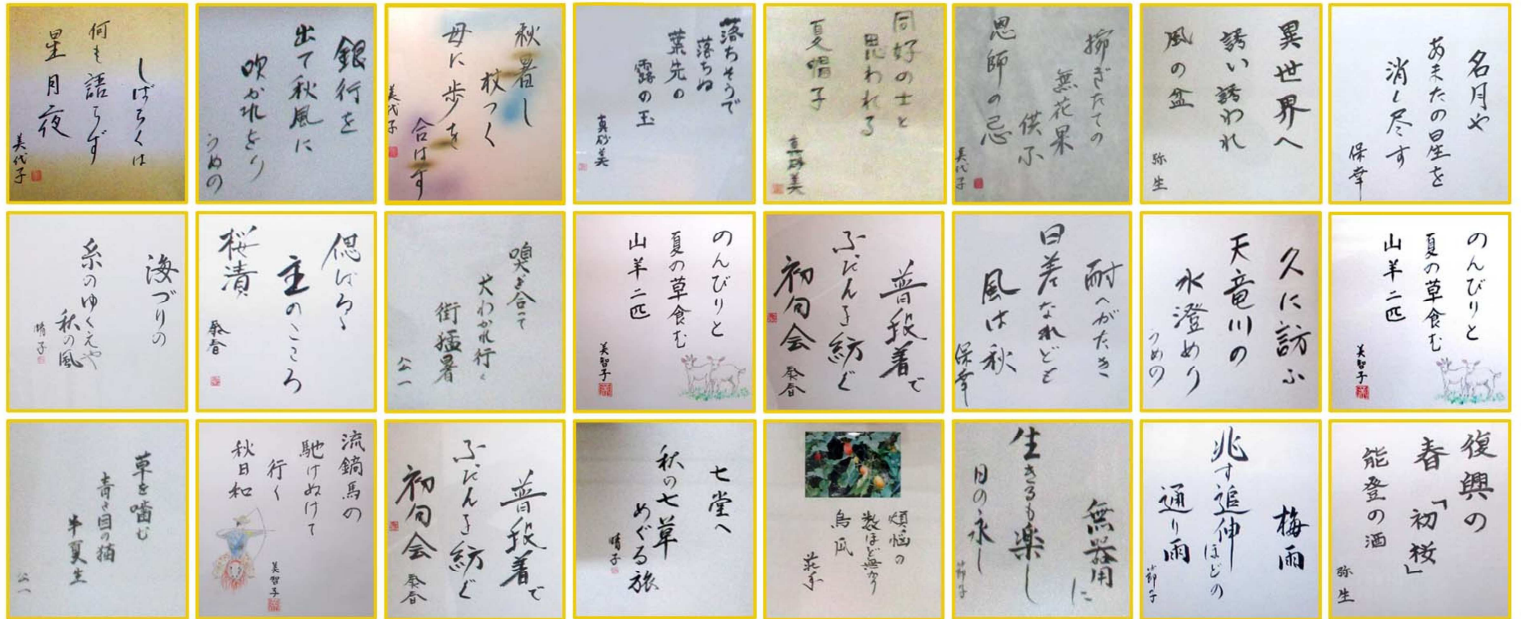 しばらくは
何も語らず
星月夜
美代子
銀行を
出て秋風に
吹かれをり
うめの
秋暑し
杖つく
母に歩を
合はす
美代子
落ちそうで
落ちぬ
葉先の
露の玉
真砂美
同好の士と
思われる
夏帽子
真砂美
捥ぎたての
無花果
供ふ
恩師の忌
美代子
異世界へ
誘い誘われ
風の盆
弥生
名月や
あまたの星を
消し尽す
保幸
海づりの
糸のゆくえや
秋の風
晴子
偲ばるゝ
主のこころ
桜漬
葵春
嗅ぎ合って
犬わかれ行く
街猛暑
公一
のんびりと
夏の草食む
山羊二匹
美智子
普段着で
ふだんを紡ぐ
初句会
葵春
耐へがたき
日差なれども
風は秋
保幸
久に訪ふ
天竜川の
水澄めり
うめの
のんびりと
夏の草食む
山羊二匹
美智子
草を噛む
青き目の猫
半夏生
公一
流鏑馬の
馳けぬけて
行く
秋日和
美智子
普段着で
ふだんを紡ぐ
初句会
葵春
七堂へ
秋の七草
めぐる旅
晴子
煩悩の
数ほど無かり
烏瓜
無器用に
生きるも楽し
日の永し
節子
梅雨
兆す追伸
ほどの
通り雨
節子
復興の
春「初桜」
能登の酒
弥生